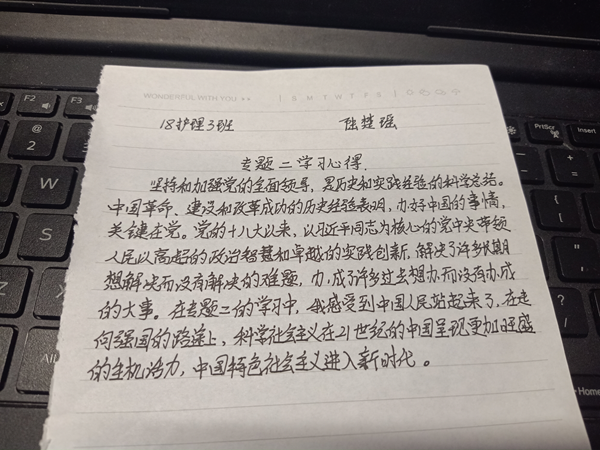 WONDERFUL WITH YOU
S M T W T F S
18护理3班
陈楚瑶
专题二学习心得.
坚持和加强党的全面领导，是历史和实践经验的科学总结。
中国革命、建设和改革成功的历史经验表明，办好中国的事情，
关键在党。党的十八大以来，以习近平同志为核心的党中央带领
人民以高超的政治智慧和卓越的实践创新，解决了许多长期
想解决而没有解决的难题，办成了许多过去想办而没有办成
的大事。在专题二的学习中，我感受到中国人民站起来了，在走
向强国的路途上，科学社会主义在21世纪的中国呈现更加旺盛
的生机活力，中国特色社会主义进入新时代。
F2
F3
F4
@
2
#
3
W
Alt
PrtScr
End